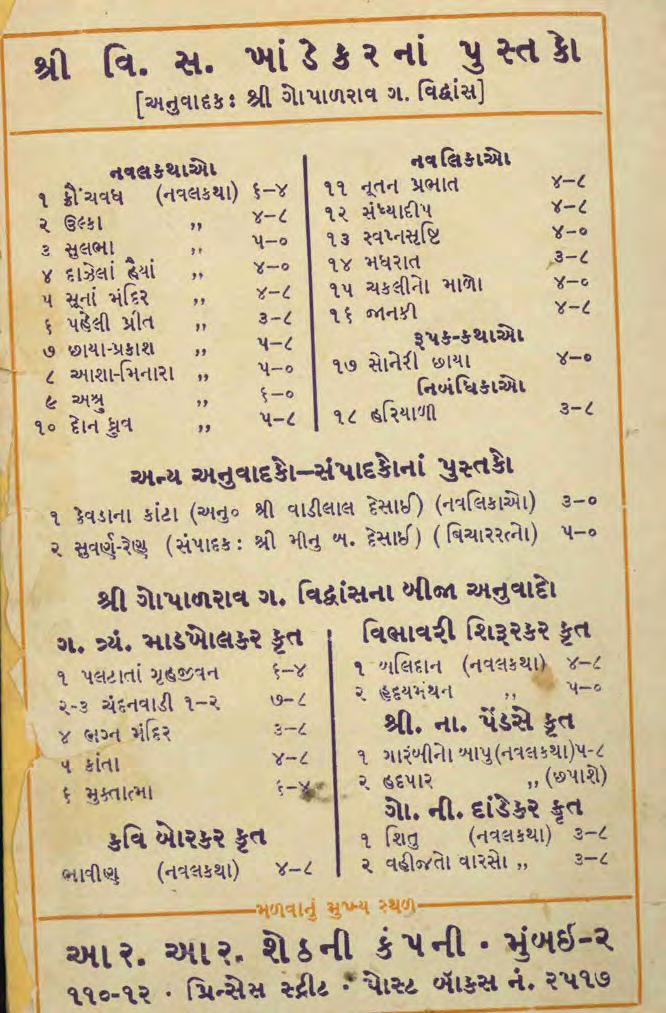 શ્રી વિ. સ. ખાંડેકરનાં પુસ્તકો
[અનુવાદક: શ્રી ગોપાળરાવ ગ. વિદ્વાંસ]
નવલકથાઓ
૧ ક્રૌંચવધ (નવલકથા) ૬-૪
૨ ઉલ્કા ,, ૪-૮
૩ સુલભા ,, ૫-૦
૪ દાઝેલાં હૈયાં ,, ૪-૦
૫ સૂનાં મંદિર ,, ૪-૮
૬ પહેલી પ્રીત ,, ૩-૮
૭ છાયા-પ્રકાશ ,, ૫-૮
૮ આશા-મિનારા ,, ૫-૦
૯ અશ્રુ ,, ૬-૦
૧૦ દોન ધ્રુવ ,, ૫-૮
નવલિકાઓ
૧૧ નૂતન પ્રભાત ૪-૮
૧૨ સંધ્યાદીપ ૪-૮
૧૩ સ્વપ્નસૃષ્ટિ ૪-૦
૧૪ મધરાત ૩-૮
૧૫ ચકલીનો માળો ૪-૦
૧૬ જાનકી ૪-૮
રૂપક-કથાઓ
૧૭ સોનેરી છાયા ૪-૦
નિબંધિકાઓ
૧૮ હરિયાળી ૩-૮
અન્ય અનુવાદકો—સંપાદકોનાં પુસ્તકો
૧ કેવડાના કાંટા (અનુ૦ શ્રી વાડીલાલ દેસાઈ) (નવલિકાઓ) ૩-૦
૨ સુવર્ણ-રેણુ (સંપાદક: શ્રી મીનુ બ. દેસાઈ) (વિચારરત્નો) ૫-૦
શ્રી ગોપાળરાવ ગ. વિદ્વાંસના બીજા અનુવાદો
ગ. ત્ર્યં. માડખોલકર કૃત
૧ પલટાતાં ગૃહજીવન ૬-૪
૨-૩ ચંદનવાડી ૧-૨ ૭-૮
૪ ભગ્ન મંદિર ૩-૮
૫ કાંતા ૪-૮
૬ મુક્તાત્મા ૬-૪
કવિ બોરકર કૃત
ભાવીણ (નવલકથા) ૪-૮
વિભાવરી શિરૂરકર કૃત
૧ બલિદાન (નવલકથા) ૪-૮
૨ હૃદયમંથન ,, ૫-૦
શ્રી. ના. પેંડસે કૃત
૧ ગારંબીનો બાપુ (નવલકથા) ૫-૮
૨ હદપાર ,, (છપાશે)
ગો. ની. દાંડેકર કૃત
૧ શિતુ (નવલકથા) ૩-૮
૨ વહીજતો વારસો ,, ૩-૮
મળવાનું મુખ્ય સ્થળ
આર. આર. શેઠની કંપની • મુંબઇ-૨
૧૧૦-૧૨ • પ્રિન્સેસ સ્ટ્રીટ • પોસ્ટ બૉક્સ નં. ૨૫૧૭